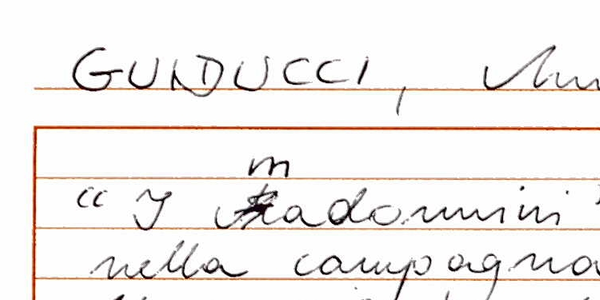 GUIDUCCI,
“I madonnini”
nella campagna